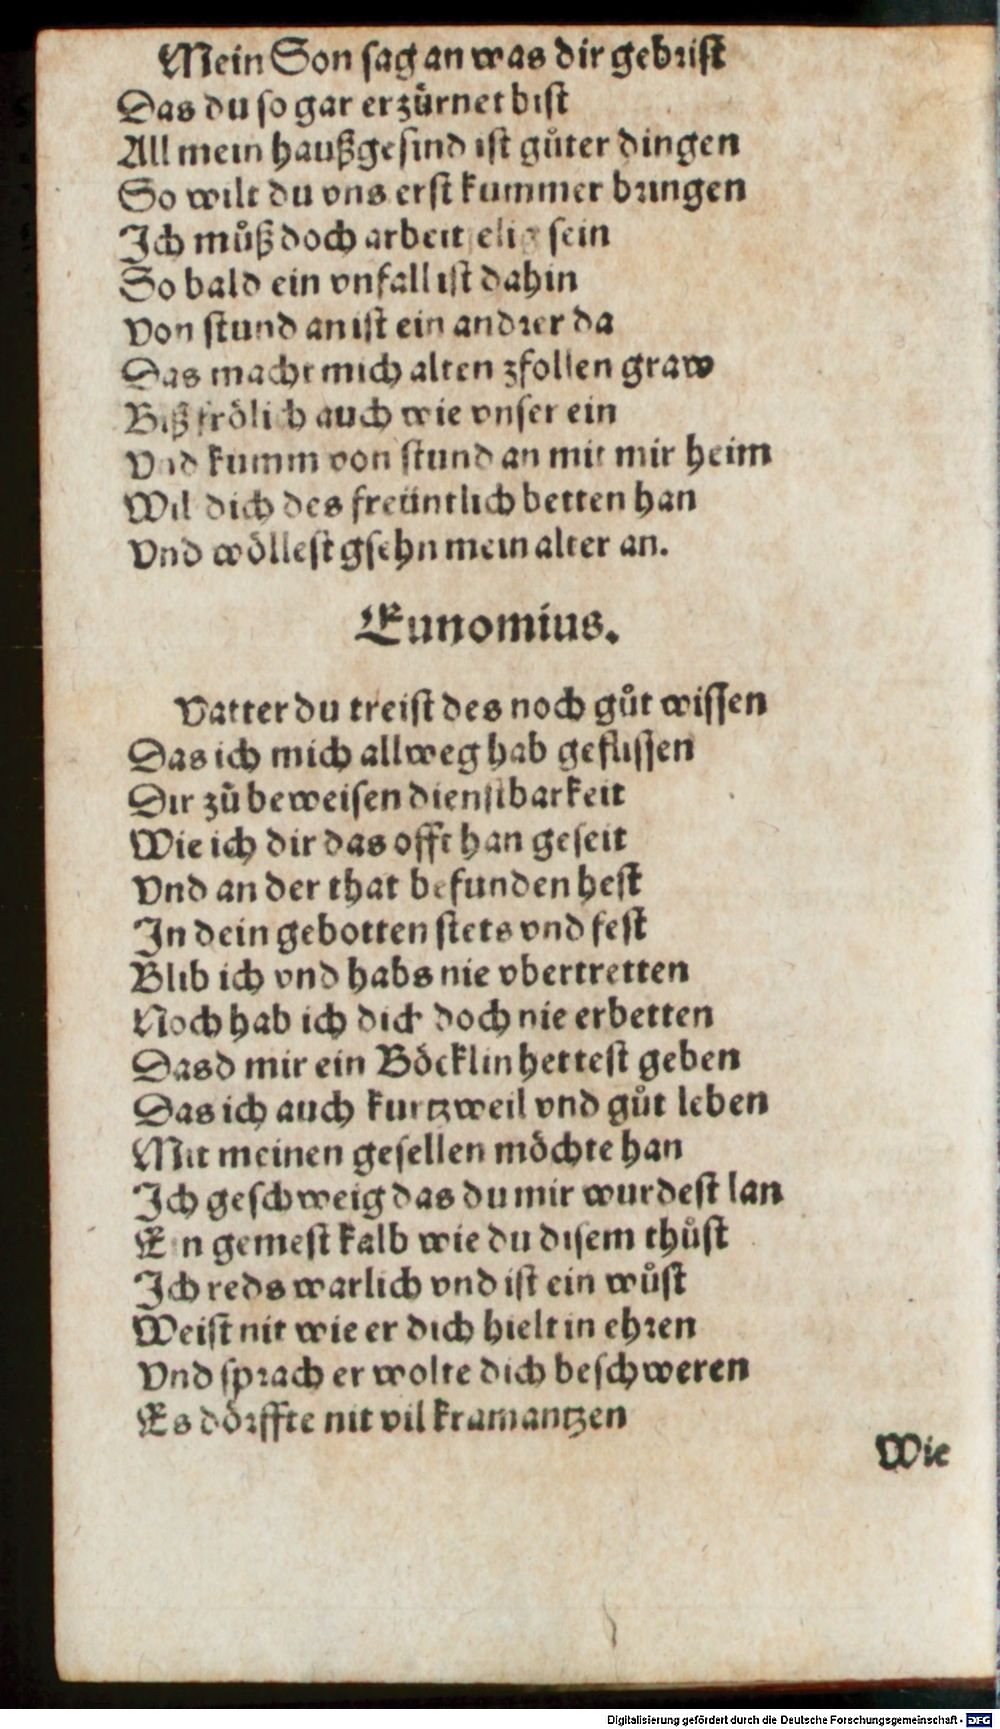 Mein Son sag an was dir gebrist
Das du so gar erzürnet bist
All mein haußgesind ist gůter dingen
So wilt du vns erst kummer bringen
Ich můß doch arbeitselig sein
So bald ein vnfall ist dahin
Von stund an ist ein andrer da
Das macht mich alten zfollen graw
Biß frölich auch wie vnser ein
Vnd kumm von stund an mit mir heim
Wil dich des freüntlich betten han
Vnd wöllest gsehn mein alter an.
Eunomius.
Vatter du treist des noch gůt wissen
Das ich mich allweg hab geflissen
Dir zů beweisen dienstbarkeit
Wie ich dir das offt han geseit
Vnd an der that befunden hest
In dein gebotten stets vnd fest
Blib ich vnd habs nie vbertretten
Noch hab ich dich doch nie erbetten
Dasd mir ein Böcklin hettest geben
Das ich auch kurtzweil vnd gůt leben
Mit meinen gesellen möchte han
Ich geschweig das du mir wurdest lan
Ein gemest kalb wie du disem thůst
Ich reds warlich vnd ist ein wůst
Weist nit wie er dich hielt in ehren
Vnd sprach er wolte dich beschweren
Es dörffte nit vil kramantzen
Wie
Digitalisierung gefördert durch die Deutsche Forschungsgemeinschaft - DFG